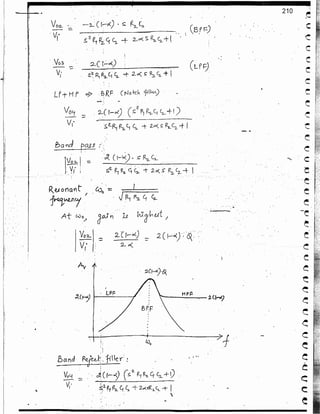 210
V02 / Vi = -2(1-α) · S R2 C2 / S² R1 R2 C1 C2 + 2α S R2 C2 + 1 (BPF)
V03 / Vi = 2(1-α) / S² R1 R2 C1 C2 + 2α S R2 C2 + 1 (LPF)
LP + HP ⇒ BRF (Notch filter)
V04 / Vi = 2(1-α) (S² R1 R2 C1 C2 + 1) / S² R1 R2 C1 C2 + 2α S R2 C2 + 1
Band pass :
|V02 / Vi| = 2(1-α) · S R2 C2 / S² R1 R2 C1 C2 + 2α S R2 C2 + 1
Resonant frequency, ω0 = 1 / √R1 R2 C1 C2
At ω0, gain is highest,
|V02 / Vi| = 2(1-α) / 2α = 2(1-α) · Q
Av
2(1-α)Q
2(1-α) LPF HPF 2(1-α)
BPF
ω0 f
Band Reject filter :
V04 / Vi = 2(1-α) (S² R1 R2 C1 C2 + 1) / S² R1 R2 C1 C2 + 2α S R2 C2 + 1